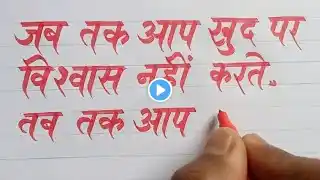 जब तक आप खुद पर
विश्वास नहीं करते,
तब तक आप